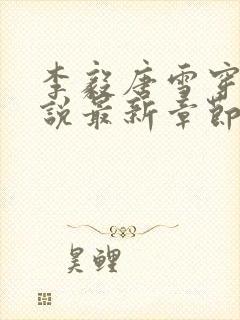 李毅唐雪穿
说最新章節
昊鲤